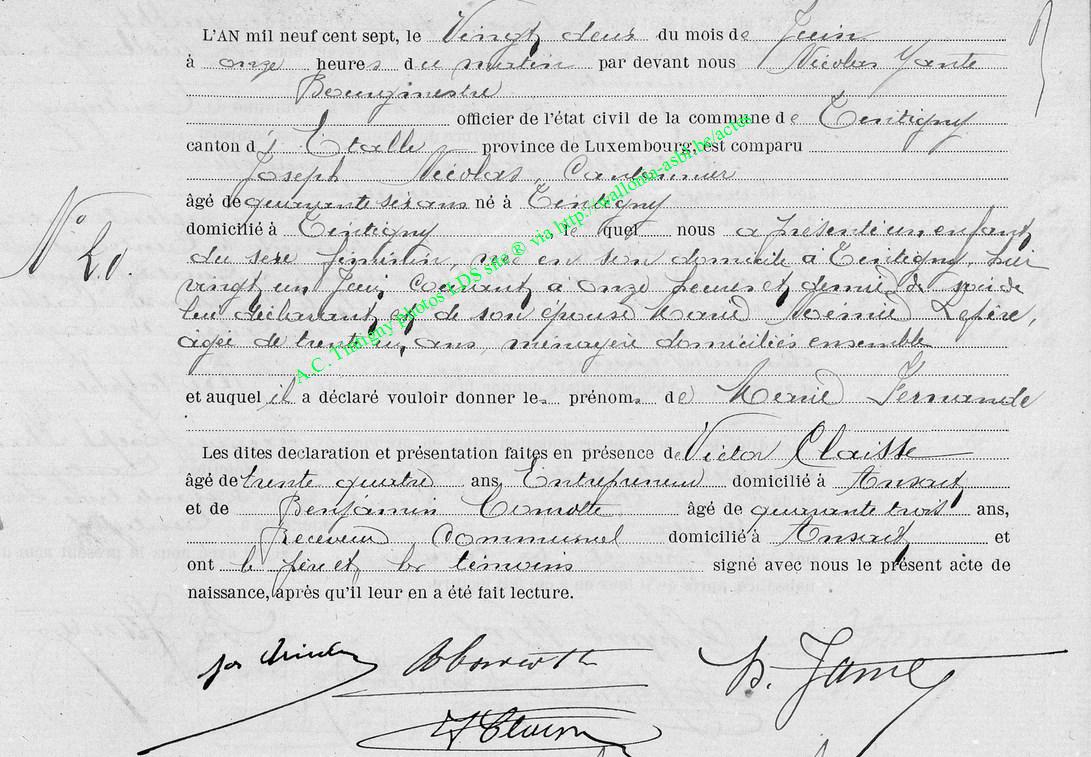 L'AN mil neuf cent sept, le Vingt deux du mois de Juin
à onze heures du matin par devant nous Nicolas
Bourgmestre
officier de l'état civil de la commune de Tintigny
canton d' Etalle province de Luxembourg, est comparu
Joseph Nicolas, Cantonnier
âgé de quarante six ans né à Tintigny
domicilié à Tintigny, le quel nous a présenté un enfant
du sexe féminin, née en son domicile à Tintigny,
vingt un Juin Courant à onze heures et demie du soir de
lui déclarant et de son épouse Marie Noémie Lepère,
âgée de trente un ans, ménagère domiciliés ensemble
et auquel il a déclaré vouloir donner les prénoms de Marie Fernande
Les dites declaration et présentation faites en présence de Victor Claisse
âgé de trente quatre ans, Entrepreneur domicilié à Ansart
et de Benjamin âgé de quarante trois ans,
Receveur Communal domicilié à Ansart et
ont le père et les témoins signé avec nous le présent acte de
naissance, après qu'il leur en a été fait lecture.
A.C. Tintigny photos LDS site® via http://wallonia-asbl.be/actes